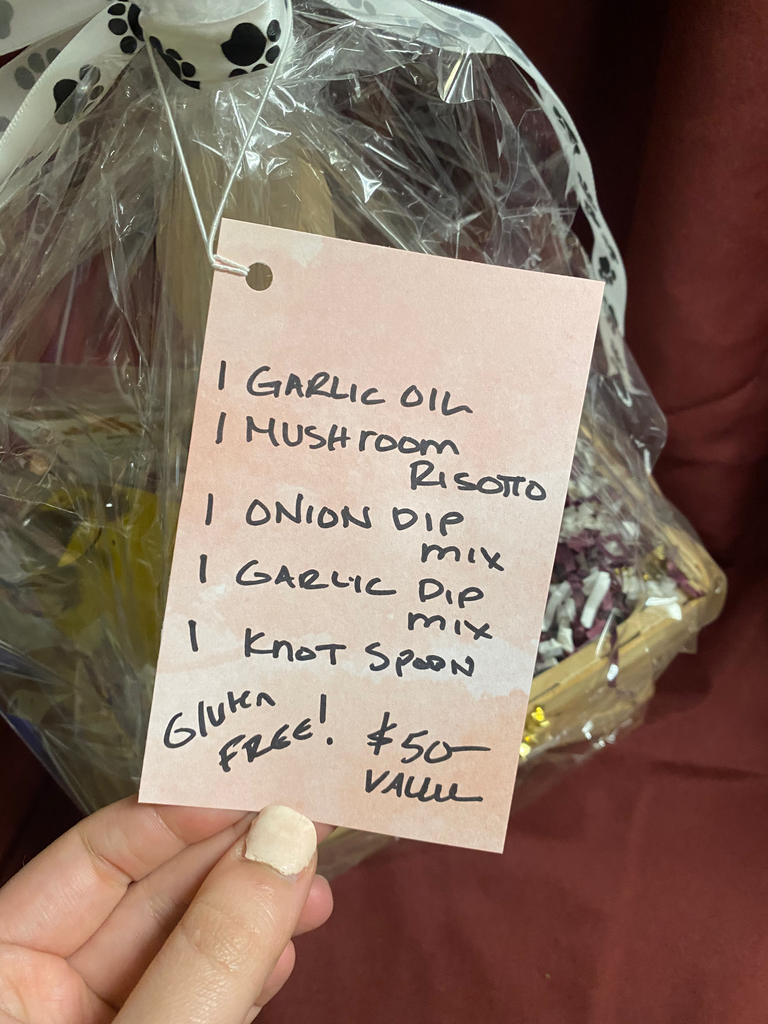 1 GARLIC OIL
1 MUSHROOM
RISOTTO
1 ONION DIP
MIX
1 GARLIC DIP
MIX
1 KNOT SPOON
Gluten
FREE!
$50-
VALUE